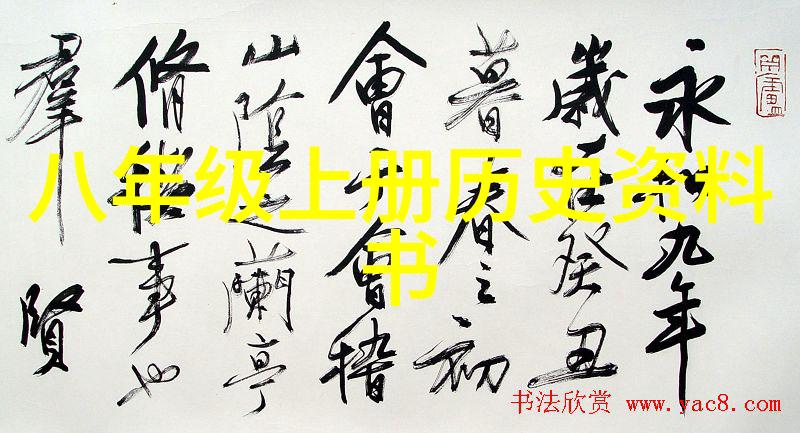 永和九年
歲在癸丑
暮春之初
會于會稽
山陰之蘭亭
脩禊事也
羣賢
八年级上册历史资料
书
书法欣赏 www.yac8.com